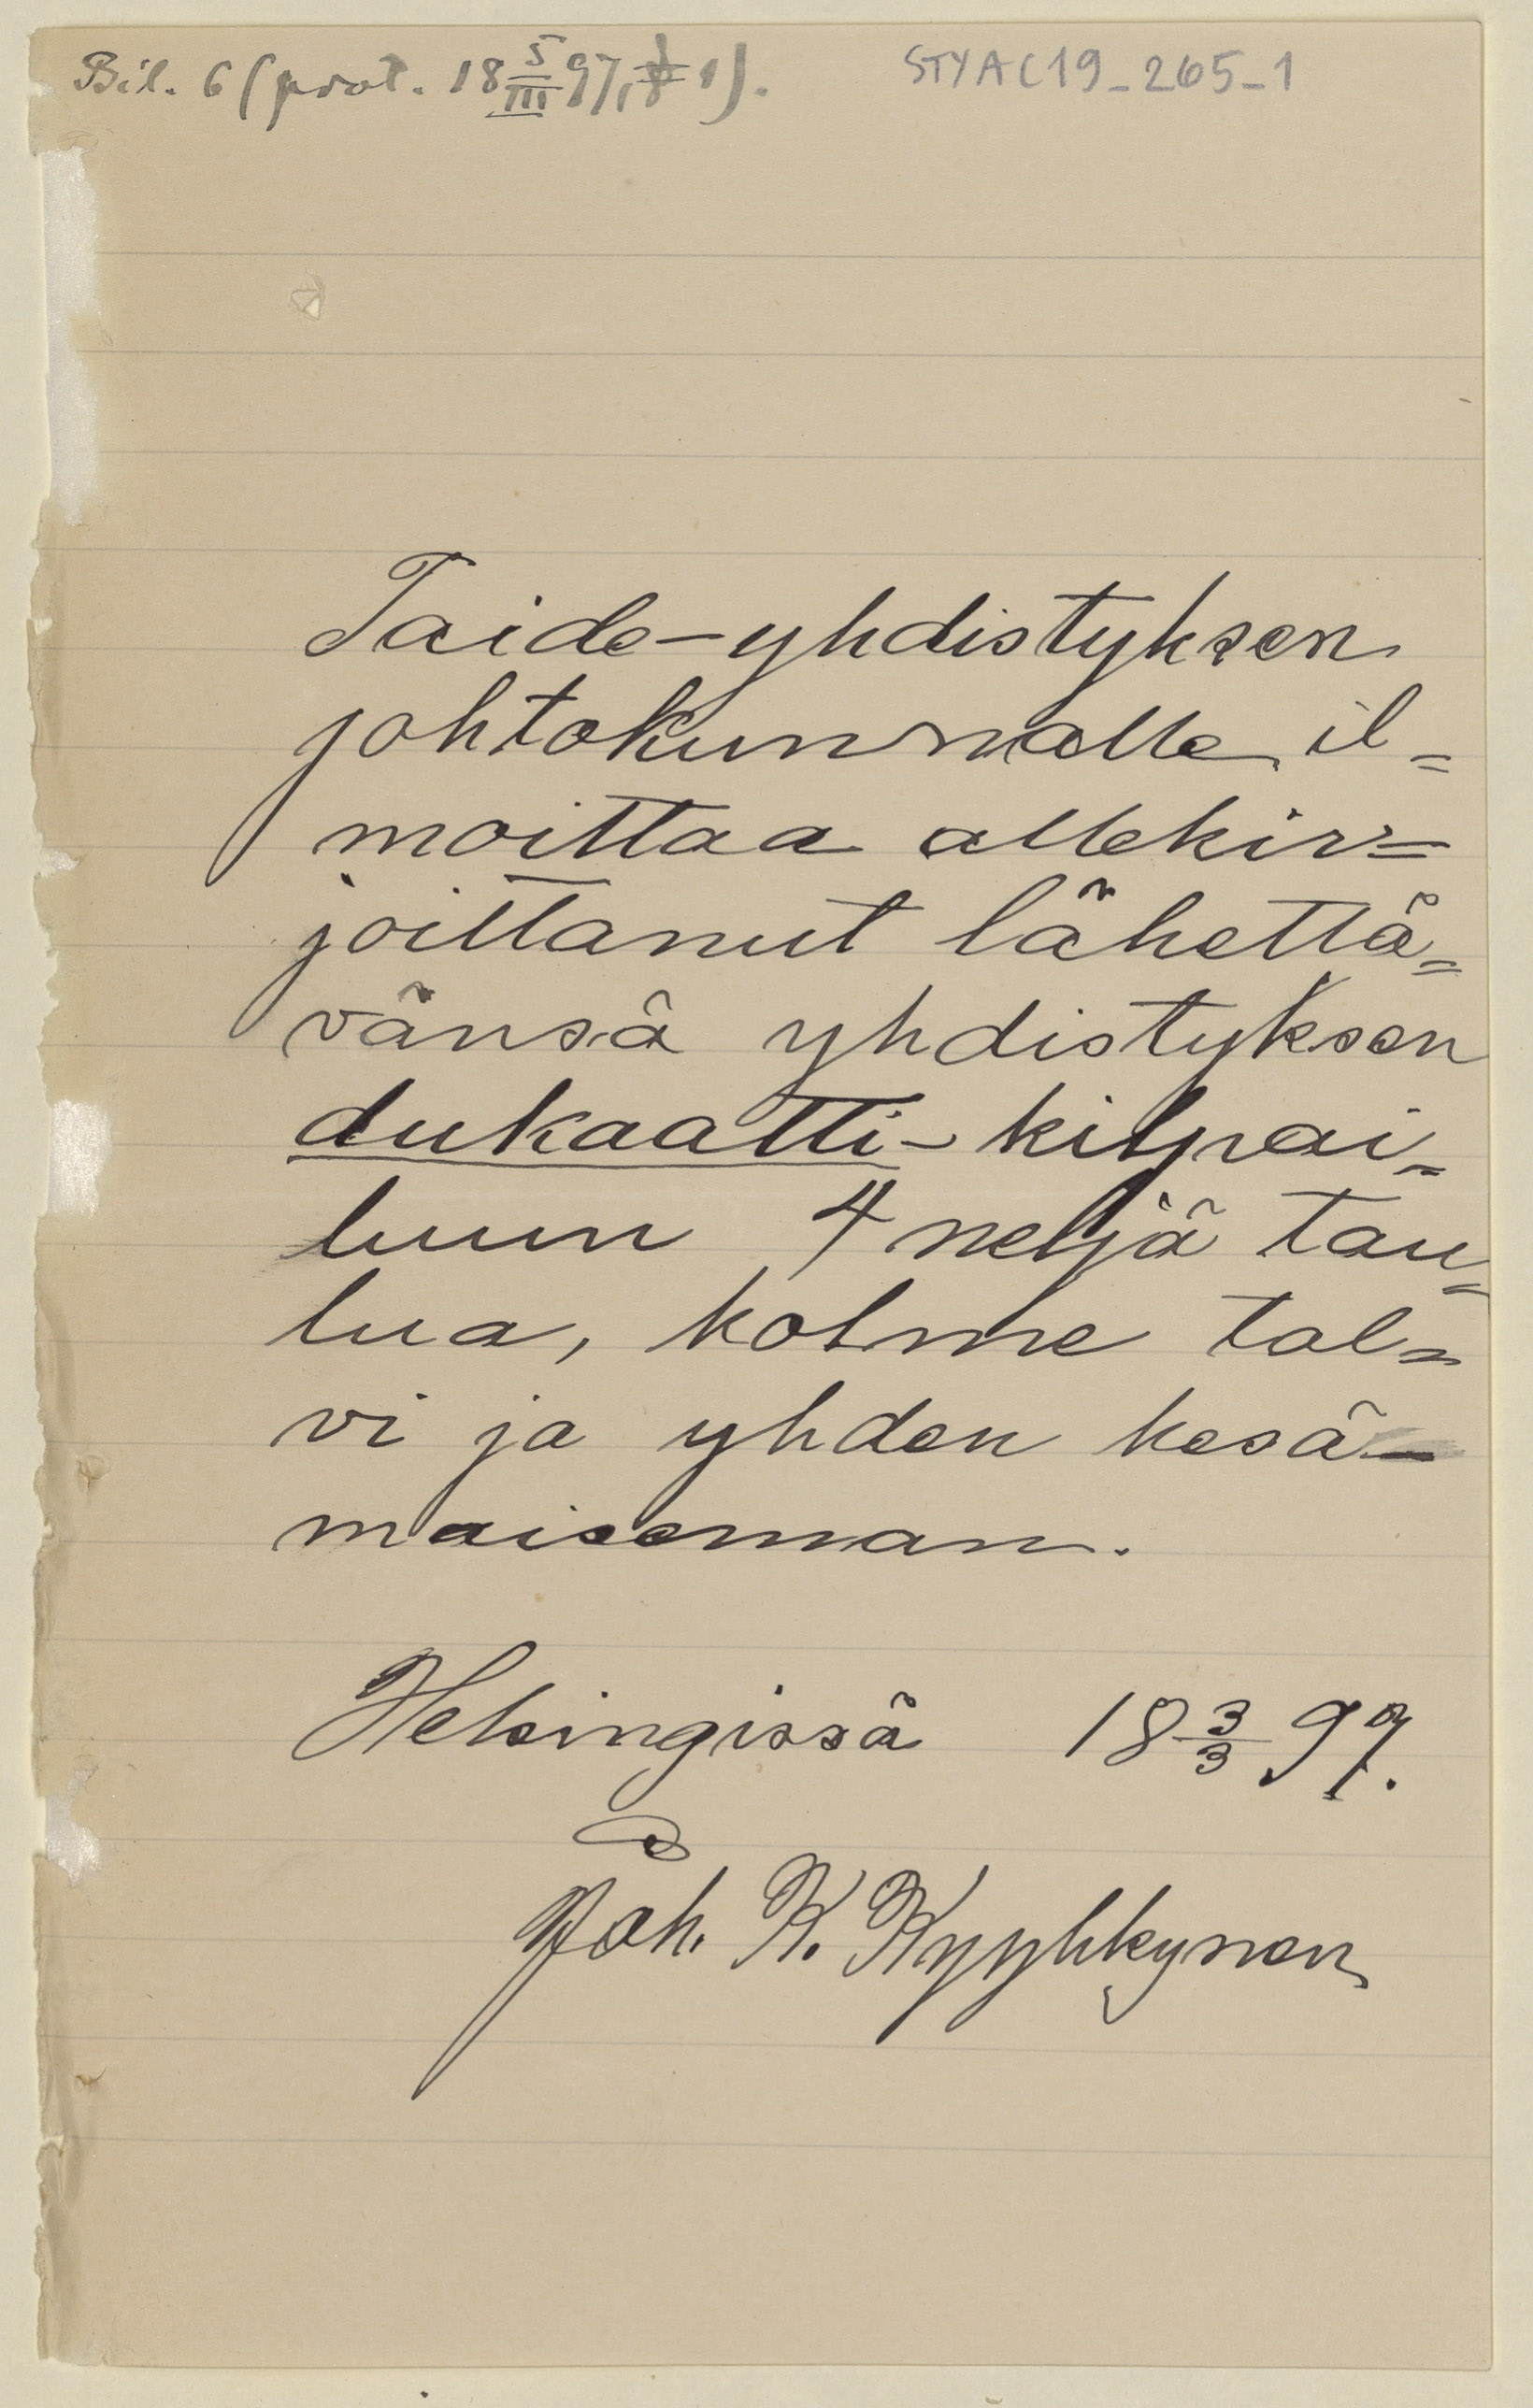 Bil. 6 (prot. 18 5/III 97, § 1).
STYA C19_265_1
Taide-yhdistyksen
johtokunnalle il=
moittaa allekir=
joittanut lähettä=
vänsä yhdistyksen
dukaatti-kilpai=
luun 4 neljä tau=
lua, kolme tal=
vi ja yhden kesä-
maiseman.
Helsingissä 18 3/3 97.
Joh. K. Kyyhkynen